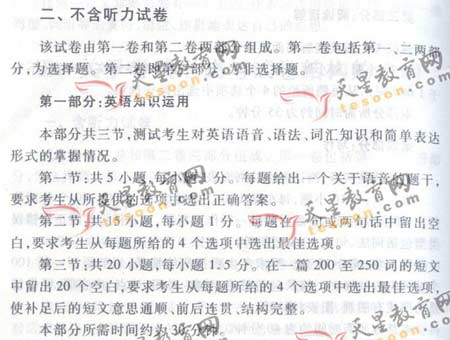 二、不含听力试卷
该试卷由第一卷和第二卷两部分组成。第一卷包括第一、二两部
分,为选择题。第二卷即第三部分,为非选择题。
第一部分:英语知识运用
本部分共三节,测试考生对英语语音、语法、词汇知识和简单表达
形式的掌握情况。
第一节:共5小题,每小题1分。每题给出一个关于语音的题干,
要求考生从所提供的选项中选出正确答案。
第二节:共15小题,每小题1分。每题在一句或两句话中留出空
白,要求考生从每题所给的4个选项中选出最佳选项。
第三节:共20小题,每小题1.5分。在一篇200至250词的短文
中留出20个空白,要求考生从每题所给的4个选项中选出最佳选项,
使补足后的短文意思通顺、前后连贯、结构完整。
本部分所需时间约为30分钟。
天星教育网
tesoon.com